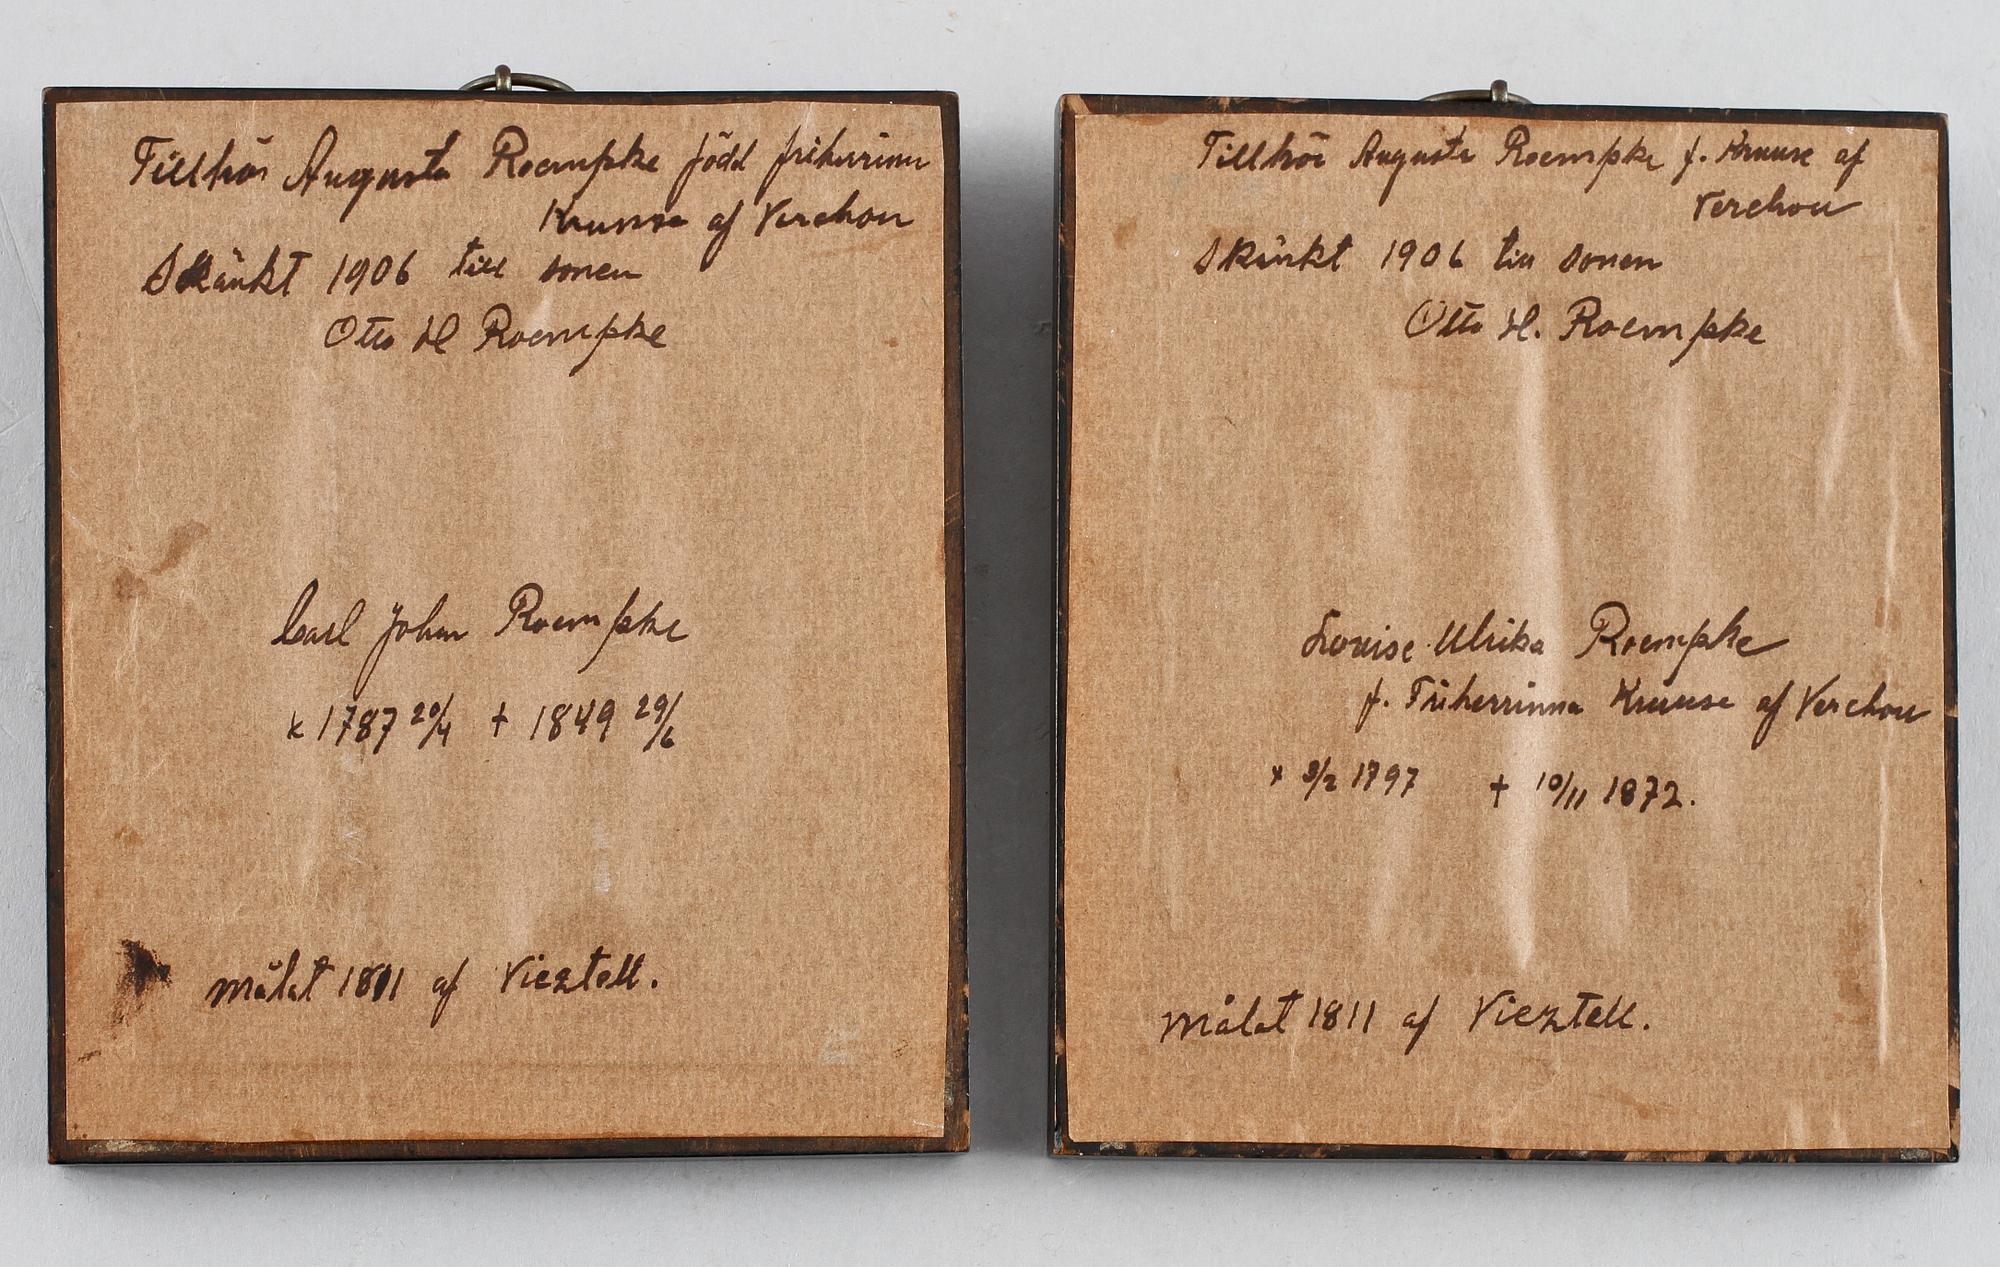 Tillhör Augusta Roempke född friherrinna
Kruuse af Verchou
Skänkt 1906 till sonen
Otto H Roempke
Carl John Roempke
x 1787 20/4 + 1849 29/6
målat 1811 af Vieztell.
Tillhör Augusta Roempke f. Kruuse af
Verchou
Skänkt 1906 till sonen
Otto H. Roempke
Louise Ulrika Roempke
f. Friherrinna Kruuse af Verchou
x 8/2 1797 + 10/11 1872.
målat 1811 af Vieztell.